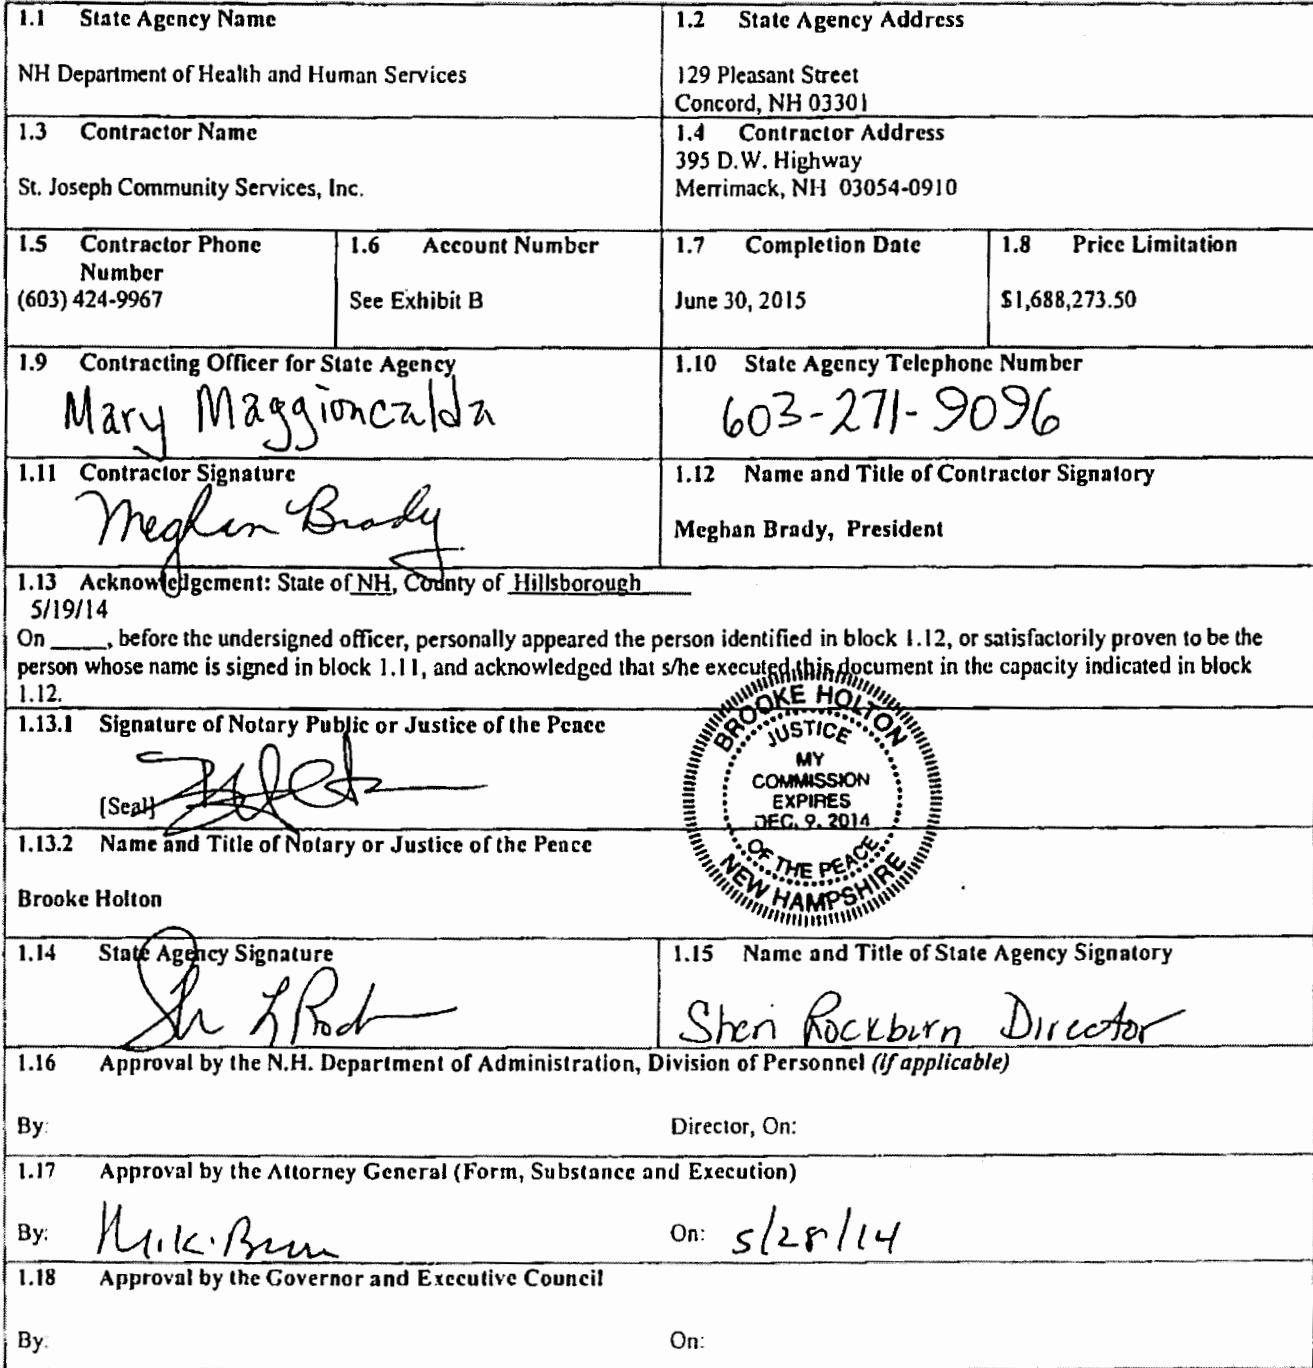 1.1 State Agency Name
NH Department of Health and Human Services
1.2 State Agency Address
129 Pleasant Street
Concord, NH 03301
1.3 Contractor Name
St. Joseph Community Services, Inc.
1.4 Contractor Address
395 D.W. Highway
Merrimack, NH 03054-0910
1.5 Contractor Phone
Number
(603) 424-9967
1.6 Account Number
See Exhibit B
1.7 Completion Date
June 30, 2015
1.8 Price Limitation
$1,688,273.50
1.9 Contracting Officer for State Agency
Mary Maggioncalda
1.10 State Agency Telephone Number
603-271-9096
1.11 Contractor Signature
Meghan Brady
1.12 Name and Title of Contractor Signatory
Meghan Brady, President
1.13 Acknowledgement: State of NH, County of Hillsborough
5/19/14
On ____, before the undersigned officer, personally appeared the person identified in block 1.12, or satisfactorily proven to be the
person whose name is signed in block 1.11, and acknowledged that s/he executed this document in the capacity indicated in block
1.12.
1.13.1 Signature of Notary Public or Justice of the Peace
[Seal]
BROOKE HOLTON
JUSTICE
MY
COMMISSION
EXPIRES
DEC. 9, 2014
OF THE PEACE
NEW HAMPSHIRE
1.13.2 Name and Title of Notary or Justice of the Peace
Brooke Holton
1.14 State Agency Signature
1.15 Name and Title of State Agency Signatory
Sheri Rockburn Director
1.16 Approval by the N.H. Department of Administration, Division of Personnel (if applicable)
By:
Director, On:
1.17 Approval by the Attorney General (Form, Substance and Execution)
By:
On: 5/28/14
1.18 Approval by the Governor and Executive Council
By:
On: